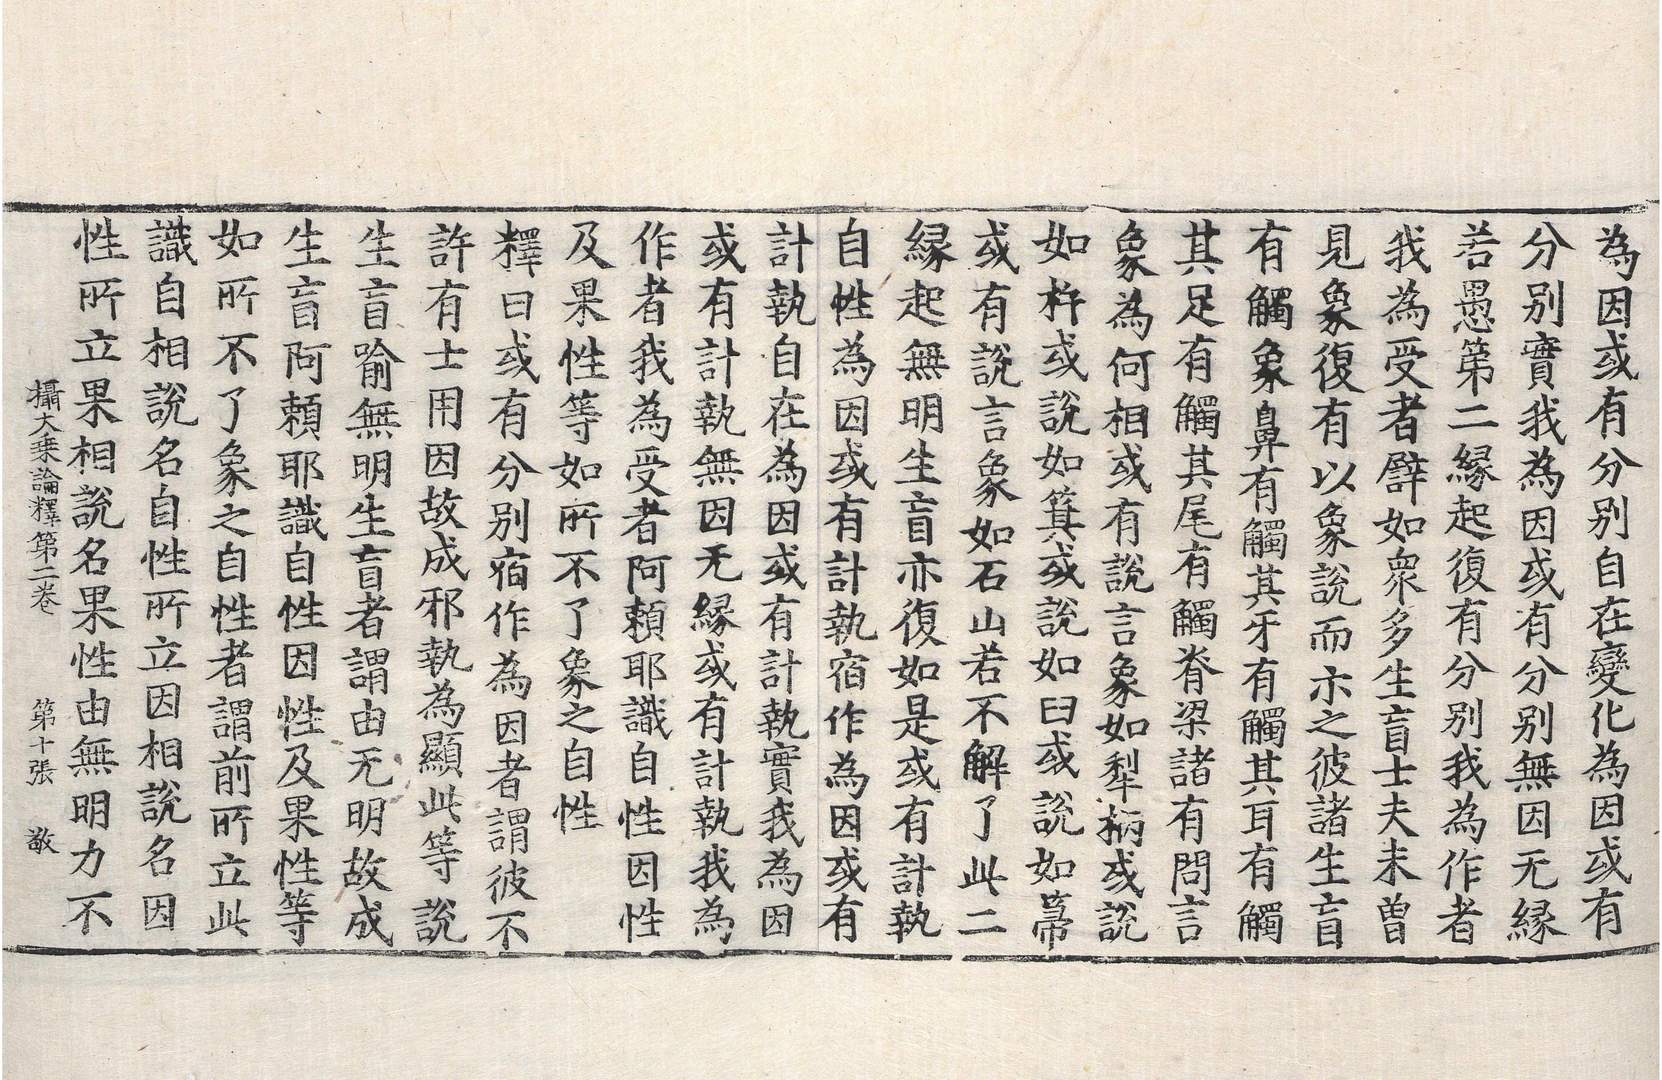 為因或有分别自在變化為因或有
分别實我為因或有分别無因无縁
若愚第二縁起復有分别我為作者
我為受者譬如衆多生盲士夫未曽
見象復有以象說而示之彼諸生盲
有觸象鼻有觸其牙有觸其耳有觸
其足有觸其尾有觸脊梁諸有問言
象為何相或有說言象如犁柄或說
如杵或說如箕或說如臼或說如箒
或有說言象如石山若不解了此二
縁起無明生盲亦復如是或有計執
自性為因或有計執宿作為因或有
計執自在為因或有計執實我為因
或有計執無因无縁或有計執我為
作者我為受者阿賴耶識自性因性
及果性等如所不了象之自性
釋曰或有分别宿作為因者謂彼不
許有士用因故成邪執為顯此等說
生盲喻無明生盲者謂由无明故成
生盲阿賴耶識自性因性及果性等
如所不了象之自性者謂前所立此
識自相說名自性所立因相說名因
性所立果相說名果性由無明力不
攝大乗論釋第二卷　第十張　敬